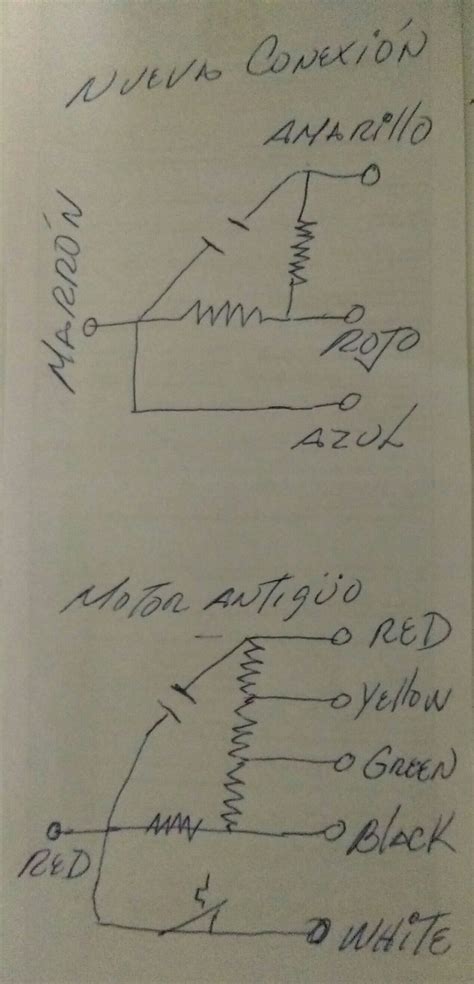 NUEVA CONEXIÓN
AMARILLO
MARRÓN
ROJO
AZUL
MOTOR ANTIGÜO
RED
YELLOW
GREEN
BLACK
RED
WHITE